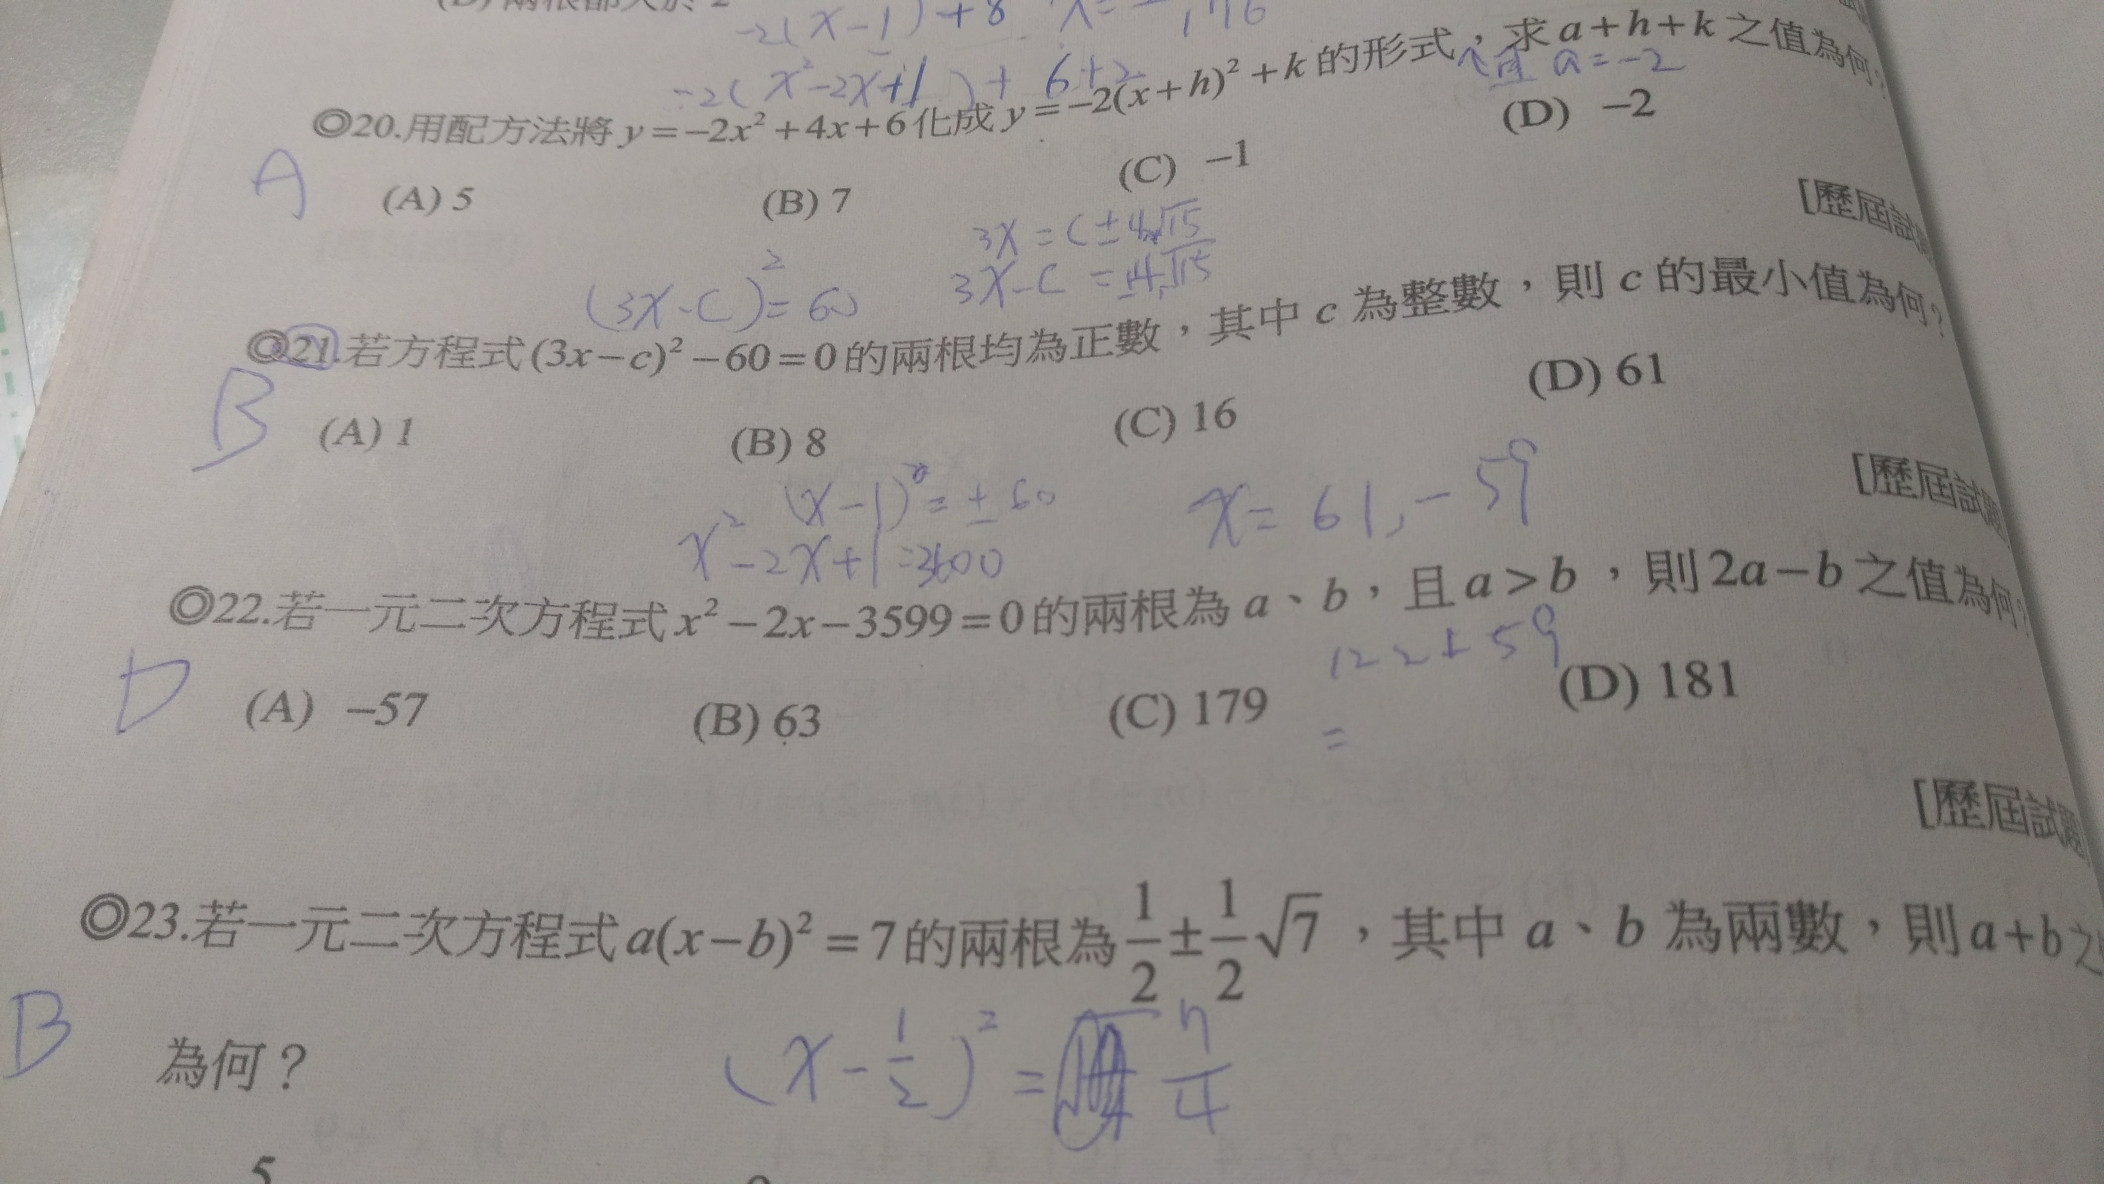 -2(x-1)²+8
-2(x²-2x+1)+6+2
a=-2
◎20.用配方法將y=-2x²+4x+6化成y=-2(x+h)²+k的形式,求a+h+k之值為何?
A
(A) 5 (B) 7 (C) -1 (D) -2
[歷屆試題
3x=c±4√15
(3x-c)²=60 3x-c=±4√15
◎21.若方程式(3x-c)²-60=0的兩根均為正數,其中c為整數,則c的最小值為何?
B
(A) 1 (B) 8 (C) 16 (D) 61
[歷屆試題
(x-1)=±60 x=61,-59
x²-2x+1=3600
◎22.若一元二次方程式x²-2x-3599=0的兩根為a、b,且a>b,則2a-b之值為何?
122+59
D
(A) -57 (B) 63 (C) 179 (D) 181
=
[歷屆試題
◎23.若一元二次方程式a(x-b)²=7的兩根為1/2±1/2√7,其中a、b為兩數,則a+b之
B
為何?
(x-1/2)²=7/4
5